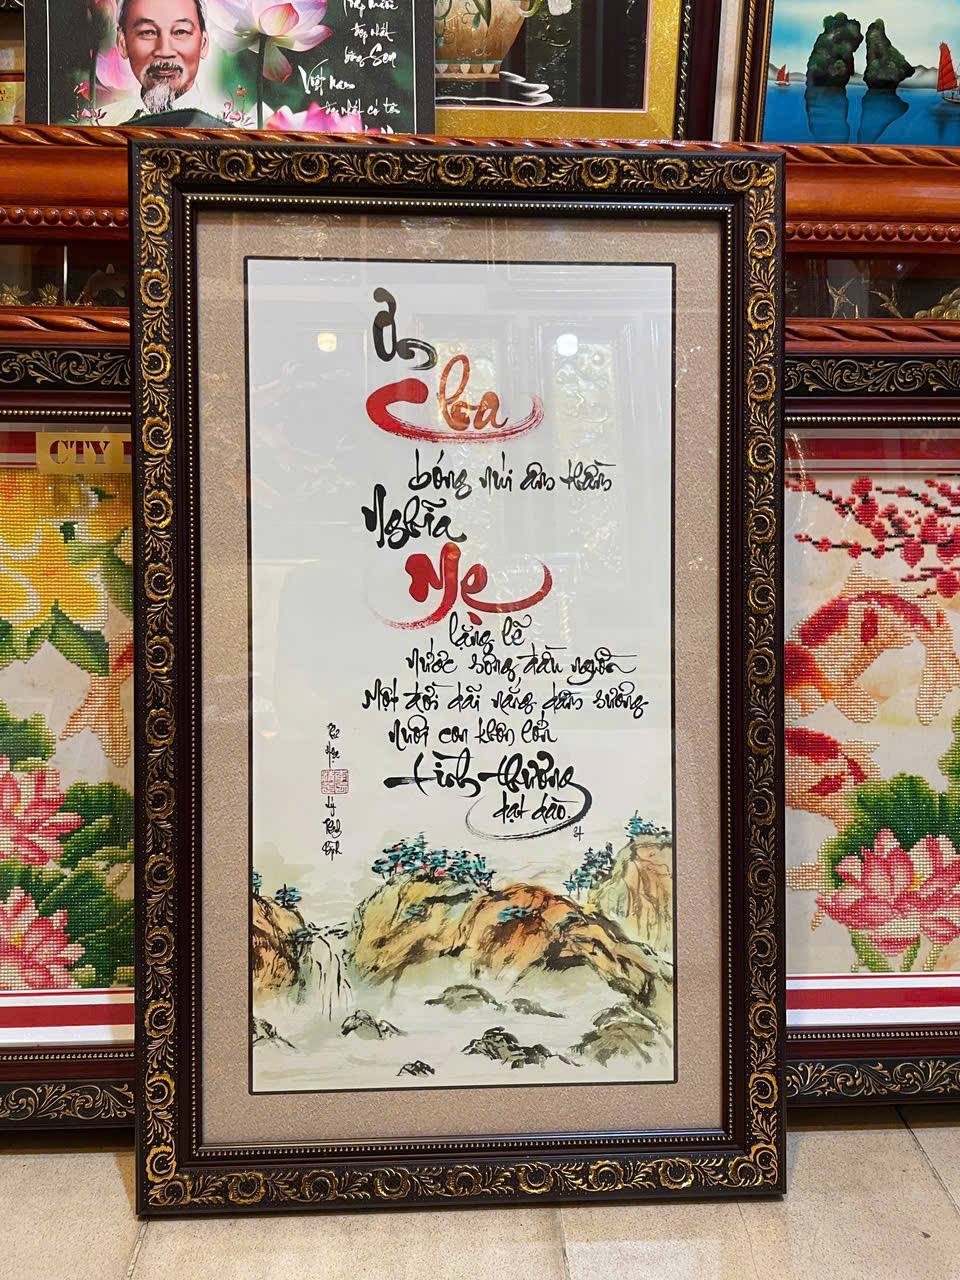 Tháp Mười
đẹp nhất
bông Sen
Việt Nam
đẹp nhất có tên
CTY
Ơn
Cha
bóng núi âm thầm
Nghĩa
Mẹ
lặng lẽ
nước sông đầu nguồn
Một đời dãi nắng dầm sương
nuôi con khôn lớn
tình thương
dạt dào.